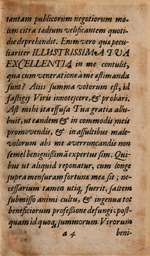 tantam publicorum negotiorum mo-
lem citra tædium velificantem quoti-
die deprehendit. Enim vero quia pecu-
liariter ILLUSTRISSIMA TUA
EXCELLENTIA in me contulit,
qua cum veneratione à me æstimanda
sunt? Altis summa votorum est, id
fastigij Viris innotescere, & probari.
Ast mihi ita effusa Tua gratia alla-
buit, ut eandem & in commodis meis
promovendis, & in assultibus male-
volorum abs me averruncandis non
semel benignissimè expertus sim. Qui-
bus ut aliquid reponatur, cum longe
supra mensuram fortuna mea sit; ne-
cessarium tamen utiq; fuerit, saltem
submisso animi cultu, & ingenua tot
beneficiorum professione defungi: post-
quam id quoq; summorum Virorum
a 4 beni-